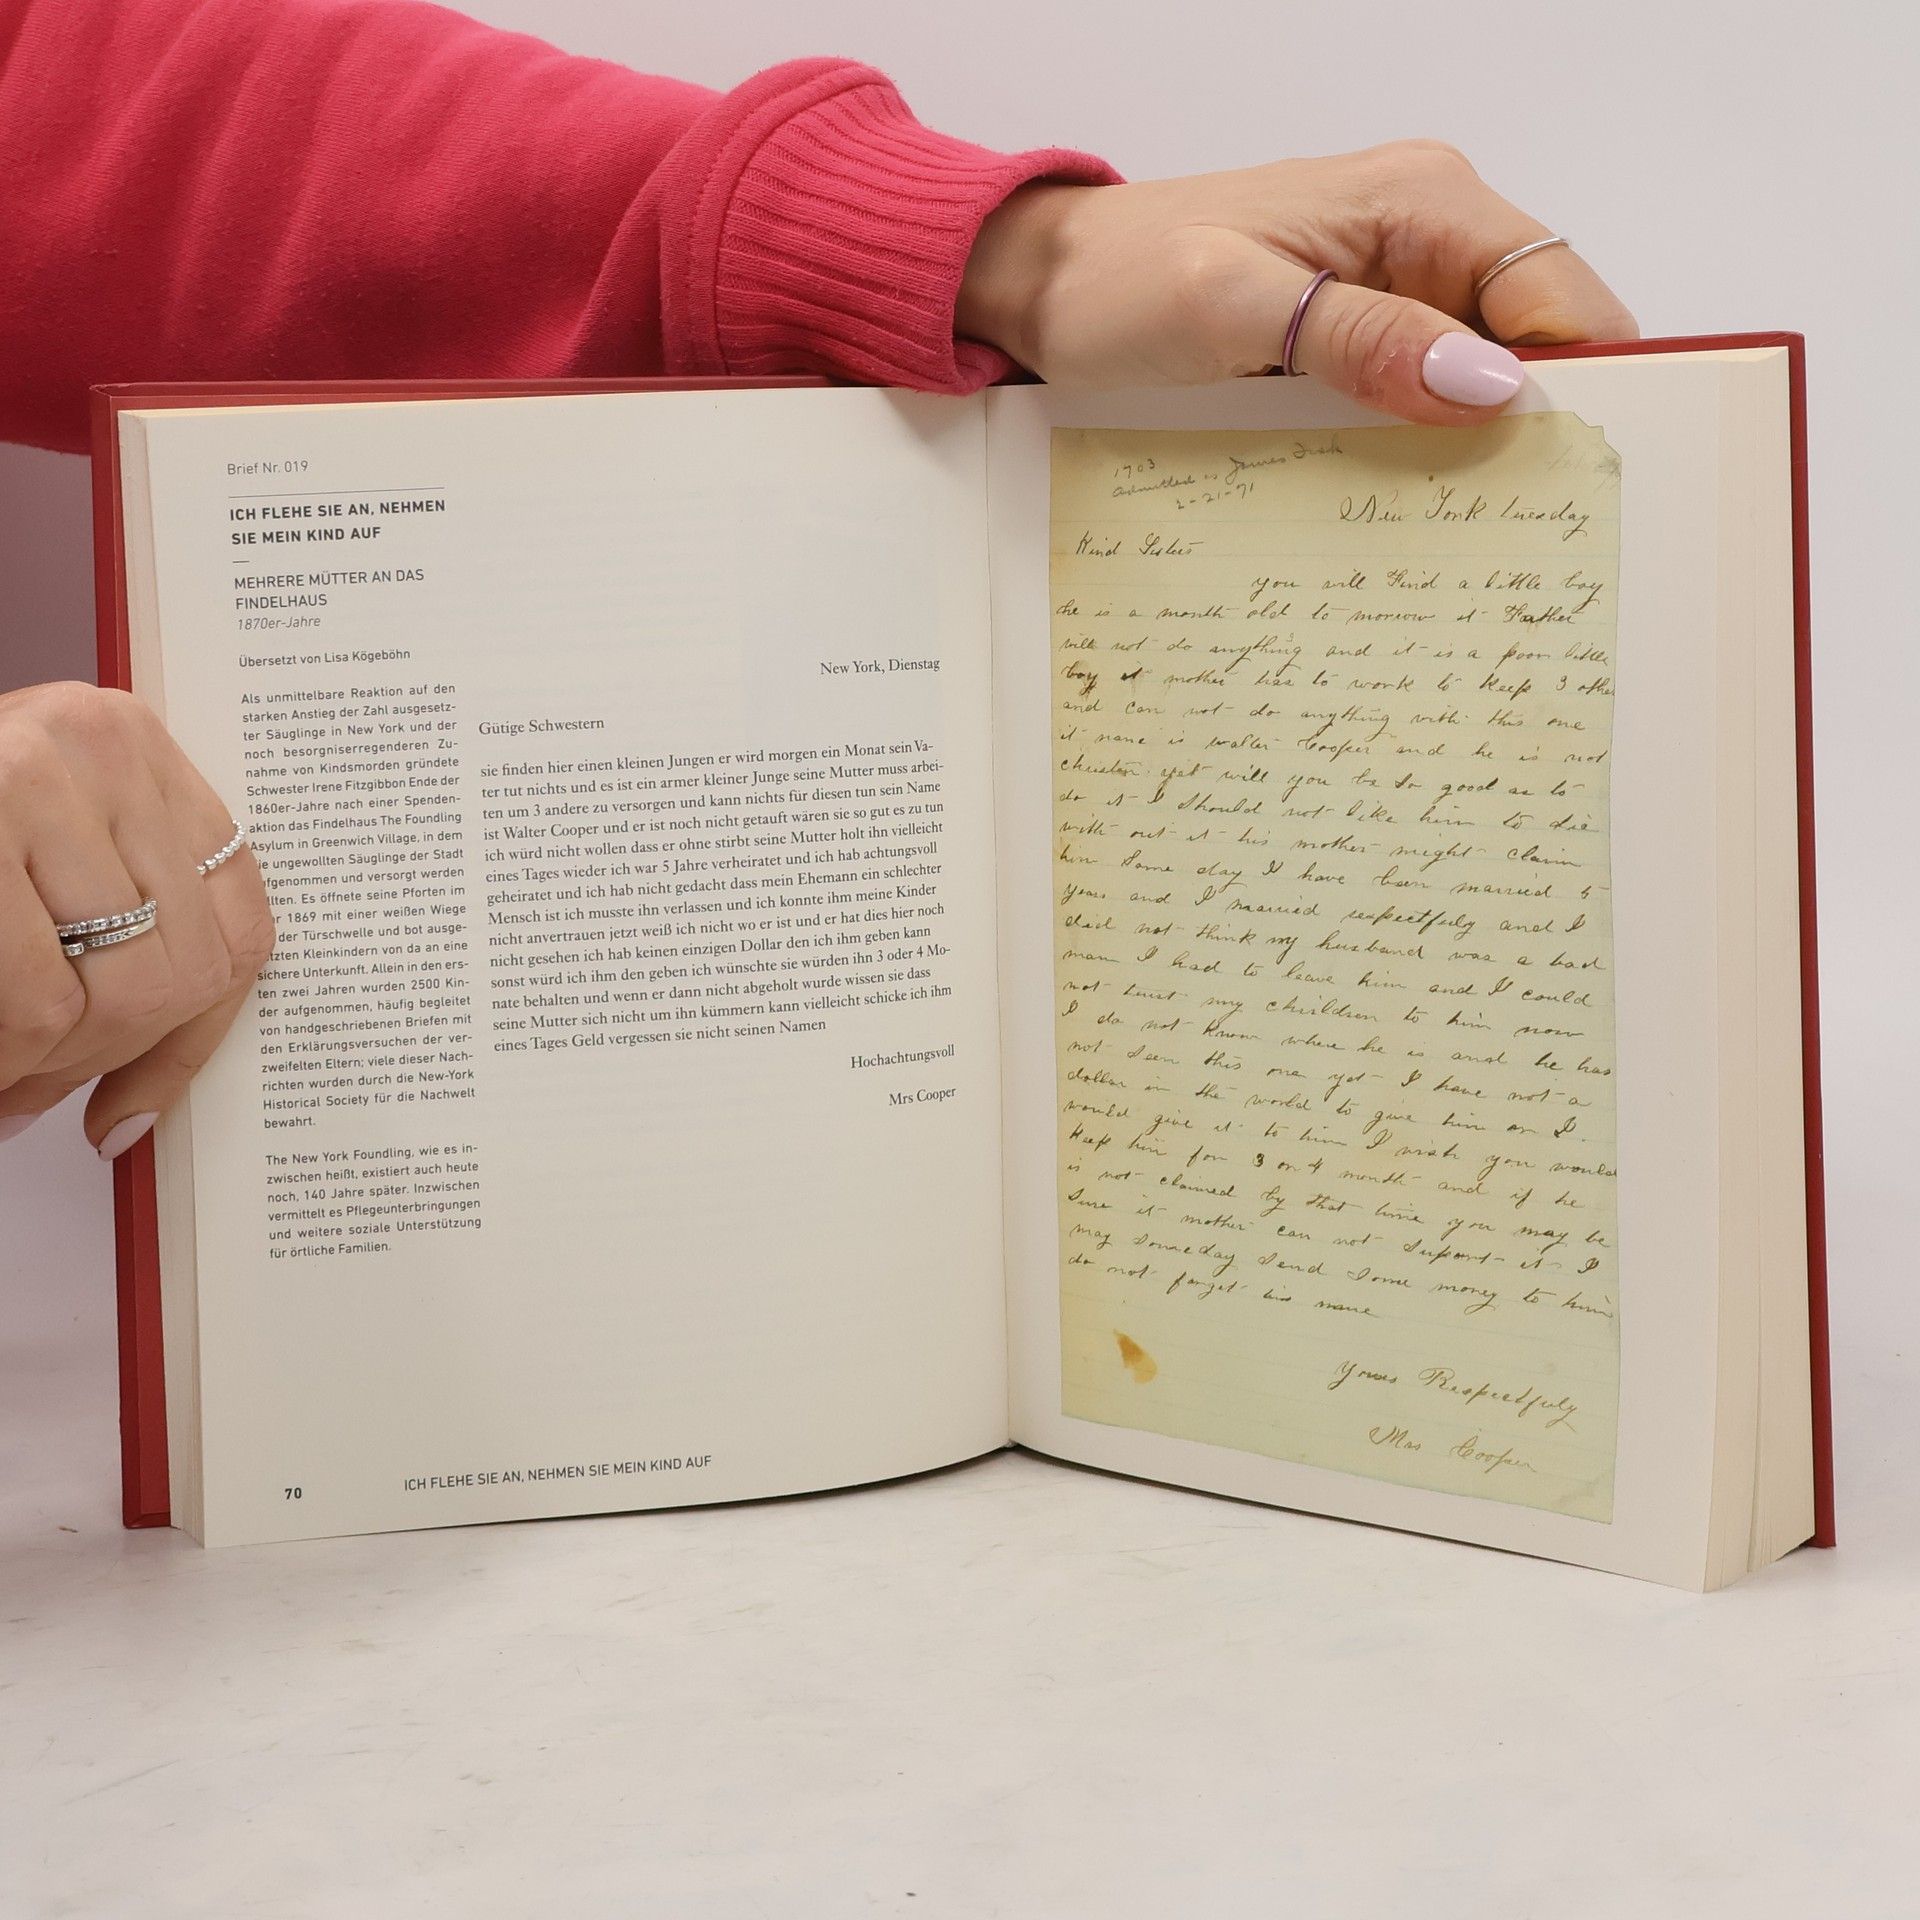 Brief Nr. 019
ICH FLEHE SIE AN, NEHMEN
SIE MEIN KIND AUF
—
MEHRERE MÜTTER AN DAS
FINDELHAUS
1870er-Jahre
Übersetzt von Lisa Kögeböhn
Als unmittelbare Reaktion auf den
starken Anstieg der Zahl ausgesetz-
ter Säuglinge in New York und der
noch besorgniserregenderen Zu-
nahme von Kindsmorden gründete
Schwester Irene Fitzgibbon Ende der
1860er-Jahre nach einer Spenden-
aktion das Findelhaus The Foundling
Asylum in Greenwich Village, in dem
ie ungewollten Säuglinge der Stadt
fgenommen und versorgt werden
llten. Es öffnete seine Pforten im
r 1869 mit einer weißen Wiege
der Türschwelle und bot ausge-
tzten Kleinkindern von da an eine
sichere Unterkunft. Allein in den ers-
ten zwei Jahren wurden 2500 Kin-
der aufgenommen, häufig begleitet
von handgeschriebenen Briefen mit
den Erklärungsversuchen der ver-
zweifelten Eltern; viele dieser Nach-
richten wurden durch die New-York
Historical Society für die Nachwelt
bewahrt.
The New York Foundling, wie es in-
zwischen heißt, existiert auch heute
noch, 140 Jahre später. Inzwischen
vermittelt es Pflegeunterbringungen
und weitere soziale Unterstützung
für örtliche Familien.
New York, Dienstag
Gütige Schwestern
sie finden hier einen kleinen Jungen er wird morgen ein Monat sein Va-
ter tut nichts und es ist ein armer kleiner Junge seine Mutter muss arbei-
ten um 3 andere zu versorgen und kann nichts für diesen tun sein Name
ist Walter Cooper und er ist noch nicht getauft wären sie so gut es zu tun
ich würd nicht wollen dass er ohne stirbt seine Mutter holt ihn vielleicht
eines Tages wieder ich war 5 Jahre verheiratet und ich hab achtungsvoll
geheiratet und ich hab nicht gedacht dass mein Ehemann ein schlechter
Mensch ist ich musste ihn verlassen und ich konnte ihm meine Kinder
nicht anvertrauen jetzt weiß ich nicht wo er ist und er hat dies hier noch
nicht gesehen ich hab keinen einzigen Dollar den ich ihm geben kann
sonst würd ich ihm den geben ich wünschte sie würden ihn 3 oder 4 Mo-
nate behalten und wenn er dann nicht abgeholt wurde wissen sie dass
seine Mutter sich nicht um ihn kümmern kann vielleicht schicke ich ihm
eines Tages Geld vergessen sie nicht seinen Namen
Hochachtungsvoll
Mrs Cooper
70
ICH FLEHE SIE AN, NEHMEN SIE MEIN KIND AUF
1703
Admitted as James Fisk
2-21-71
New York tuesday
Kind Sisters
you will Find a little boy
he is a month old to morrow it Father
will not do anything and it is a poor little
boy it mother has to work to keep 3 other
and can not do anything with this one
it name is walter Cooper and he is not
christen yet will you be so good as to
do it I should not like him to die
with out it his mother might claim
him some day I have been married 5
years and I married respectfuly and I
did not think my husband was a bad
man I had to leave him and I could
not trust my children to him now
I do not know where he is and he has
not seen this one yet I have not a
dollar in the world to give him or I
would give it to him I wish you would
keep him for 3 or 4 month and if he
is not claimed by that time you may be
sure it mother can not suport it I
may someday send some money to him
do not forget his name
Yours Respectfuly
Mrs Cooper